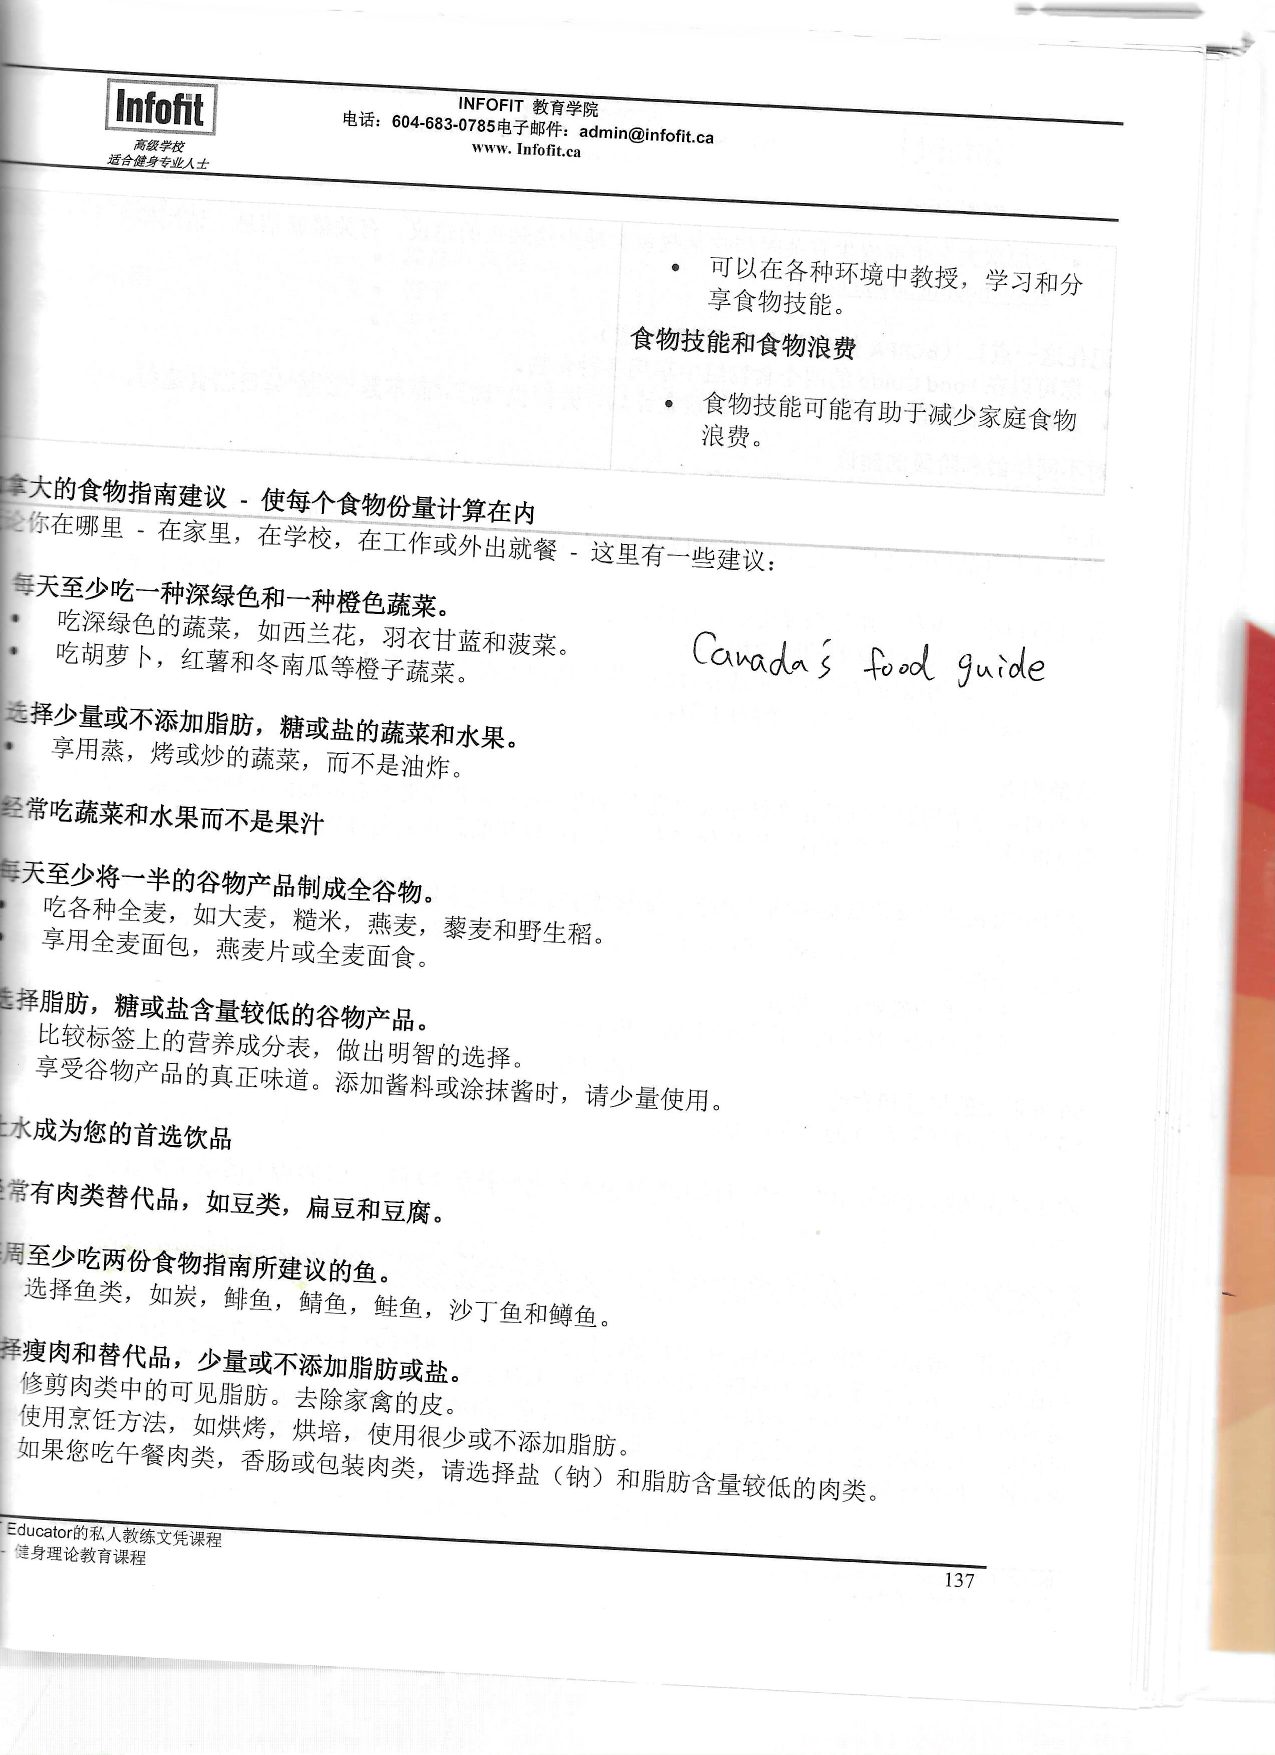 Infofit
高级学校
适合健身专业人士
INFOFIT 教育学院
电话：604-683-0785电子邮件：admin@infofit.ca
www. Infofit.ca
• 可以在各种环境中教授，学习和分
享食物技能。
食物技能和食物浪费
• 食物技能可能有助于减少家庭食物
浪费。
拿大的食物指南建议 - 使每个食物份量计算在内
论你在哪里 - 在家里，在学校，在工作或外出就餐 - 这里有一些建议：
每天至少吃一种深绿色和一种橙色蔬菜。
• 吃深绿色的蔬菜，如西兰花，羽衣甘蓝和菠菜。
• 吃胡萝卜，红薯和冬南瓜等橙子蔬菜。
Canada's food guide
选择少量或不添加脂肪，糖或盐的蔬菜和水果。
• 享用蒸，烤或炒的蔬菜，而不是油炸。
经常吃蔬菜和水果而不是果汁
每天至少将一半的谷物产品制成全谷物。
• 吃各种全麦，如大麦，糙米，燕麦，藜麦和野生稻。
• 享用全麦面包，燕麦片或全麦面食。
选择脂肪，糖或盐含量较低的谷物产品。
比较标签上的营养成分表，做出明智的选择。
享受谷物产品的真正味道。添加酱料或涂抹酱时，请少量使用。
水成为您的首选饮品
常有肉类替代品，如豆类，扁豆和豆腐。
周至少吃两份食物指南所建议的鱼。
选择鱼类，如炭，鲱鱼，鲭鱼，鲑鱼，沙丁鱼和鳟鱼。
择瘦肉和替代品，少量或不添加脂肪或盐。
修剪肉类中的可见脂肪。去除家禽的皮。
使用烹饪方法，如烘烤，烘培，使用很少或不添加脂肪。
如果您吃午餐肉类，香肠或包装肉类，请选择盐（钠）和脂肪含量较低的肉类。
Educator的私人教练文凭课程
- 健身理论教育课程
137